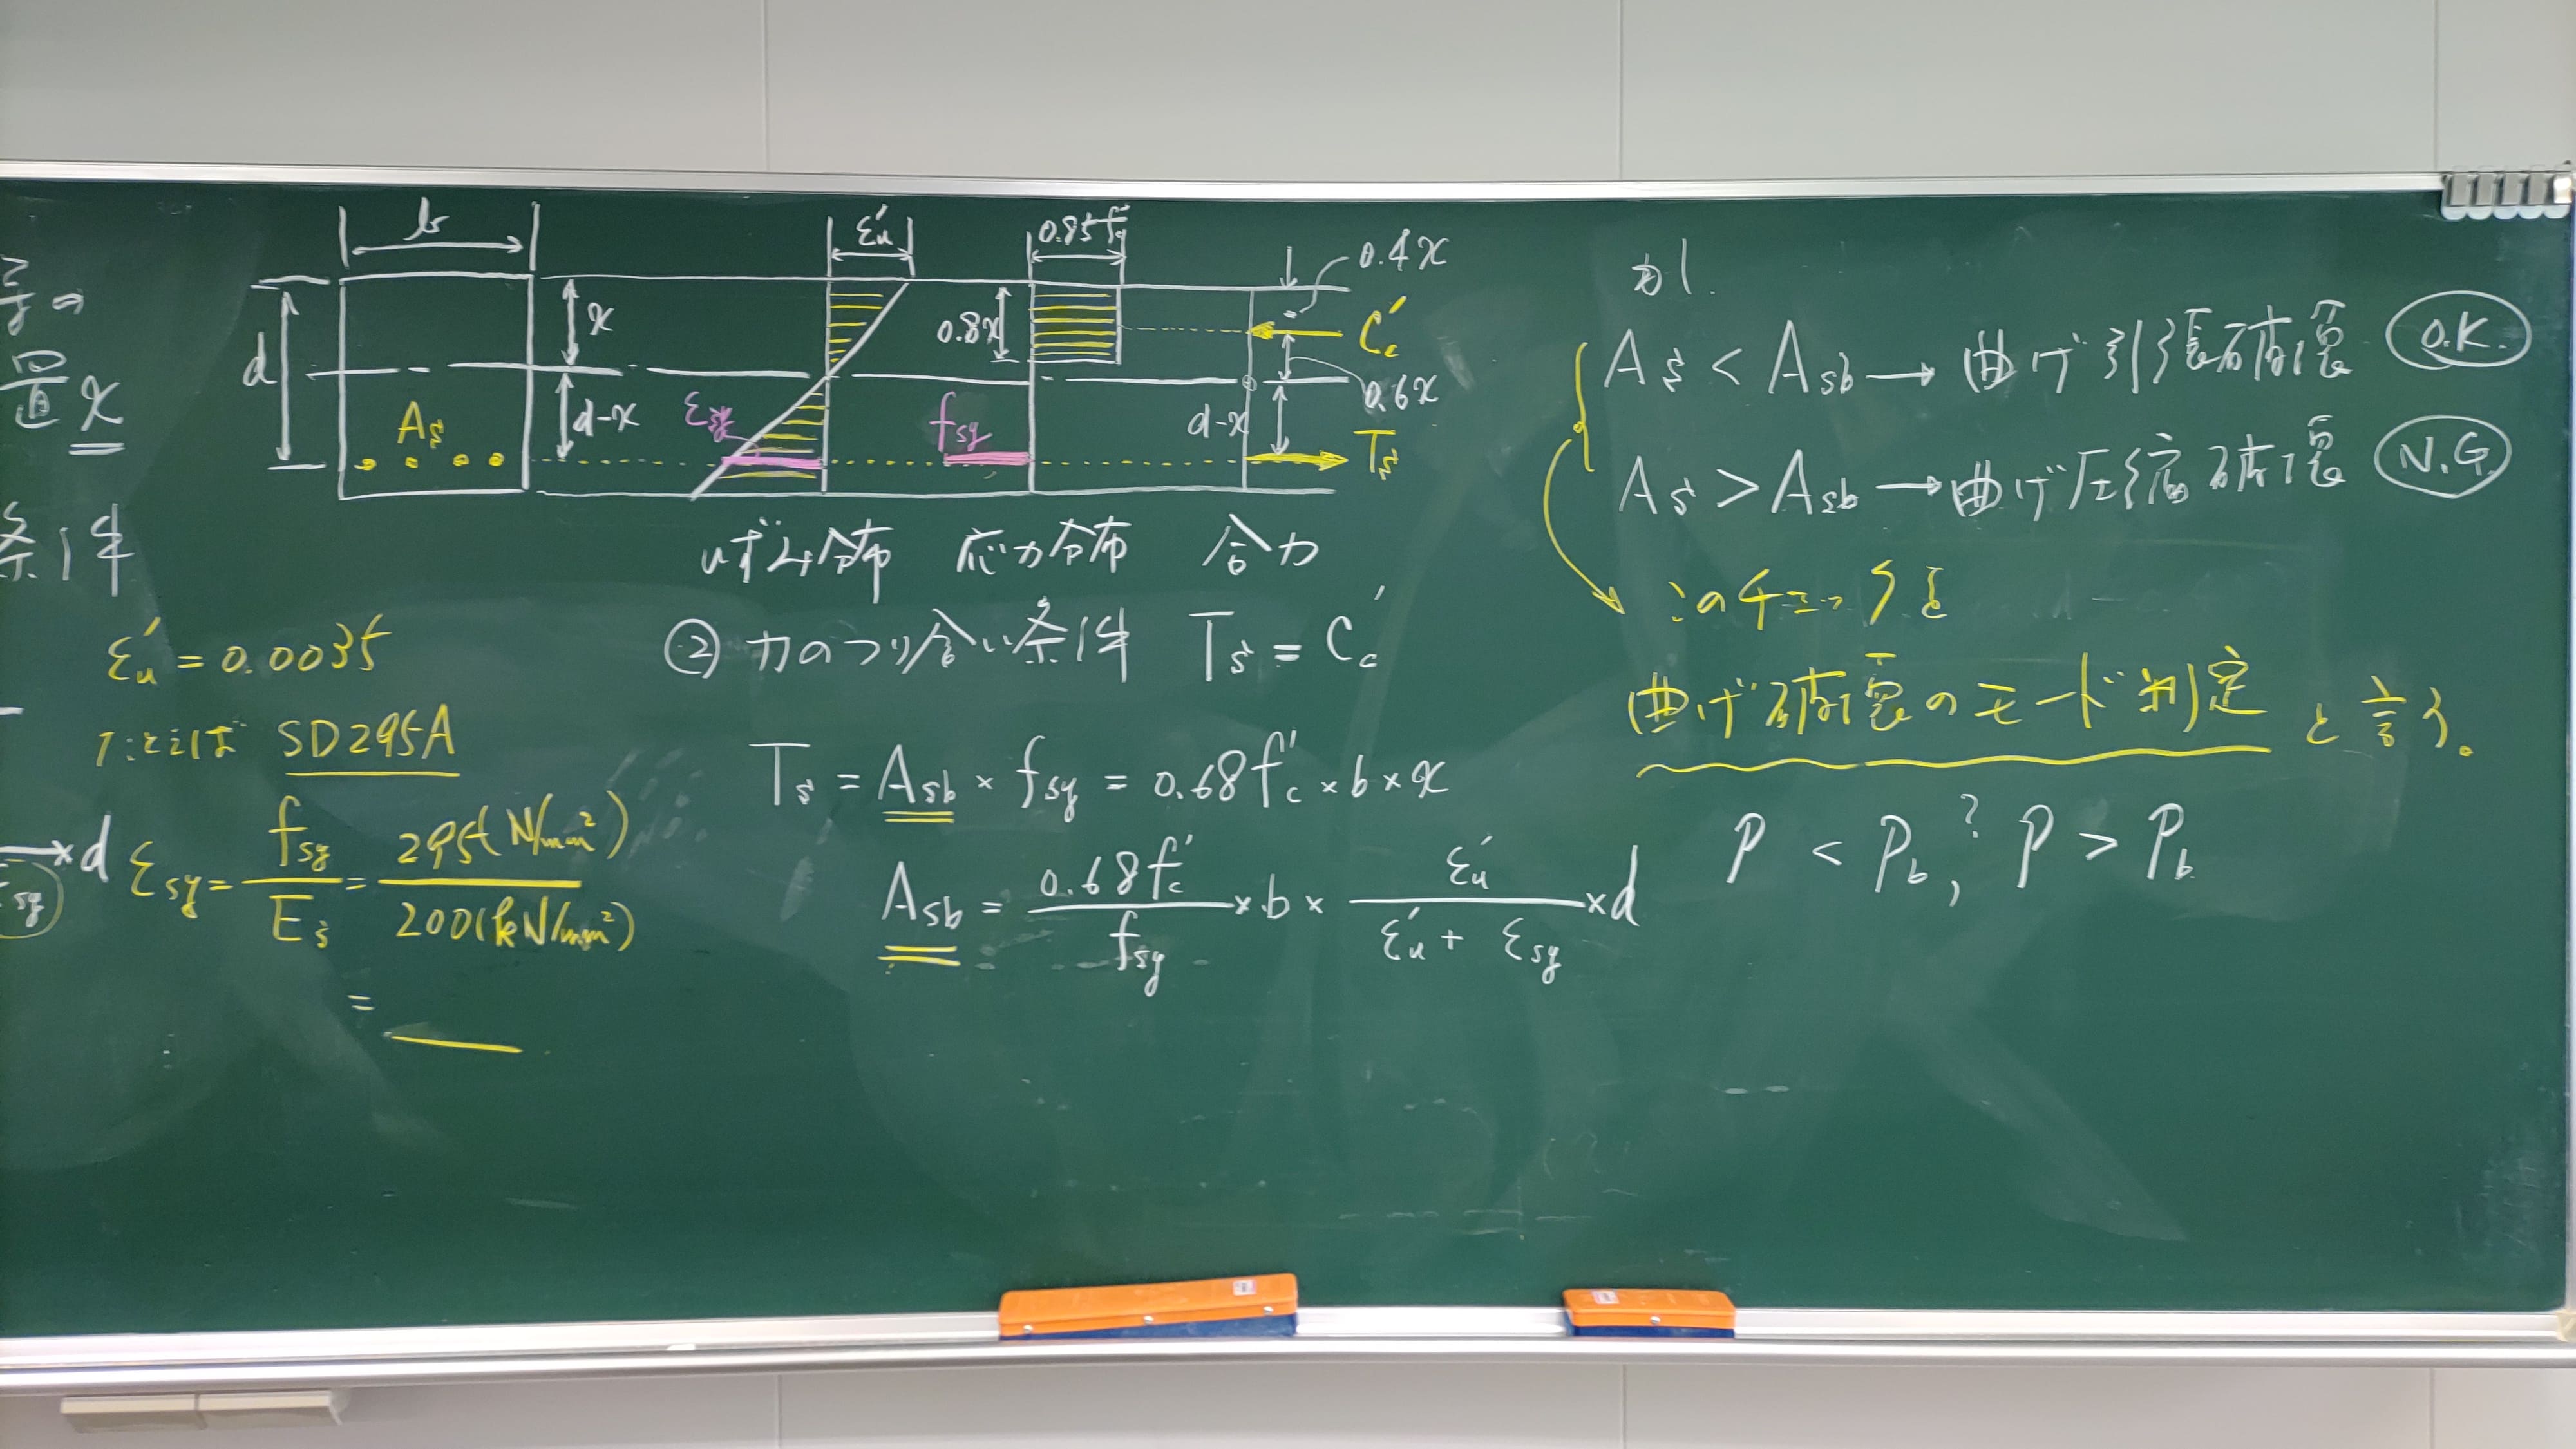 の
置 x
条件
ε'u = 0.0035
たとえば SD295A
×d
εsy = fsy / Es = 295(N/mm²) / 200(kN/mm²)
=
εsy
b
d
As
x
d-x
ε'u
εsy
0.85f'c
0.8x
fsy
0.4x
C'c
0.6x
d-x
Ts
ひずみ分布 応力分布 合力
② 力のつり合い条件 Ts = C'c
Ts = Asb × fsy = 0.68f'c × b × x
Asb = 0.68f'c / fsy × b × ε'u / ε'u + εsy × d
As < Asb → 曲げ引張破壊 O.K.
As > Asb → 曲げ圧縮破壊 N.G.
このチェックを
曲げ破壊のモード判定 と言う。
P < Pb, ? P > Pb